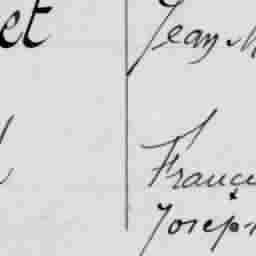 et
Jean M
Franç
Josep